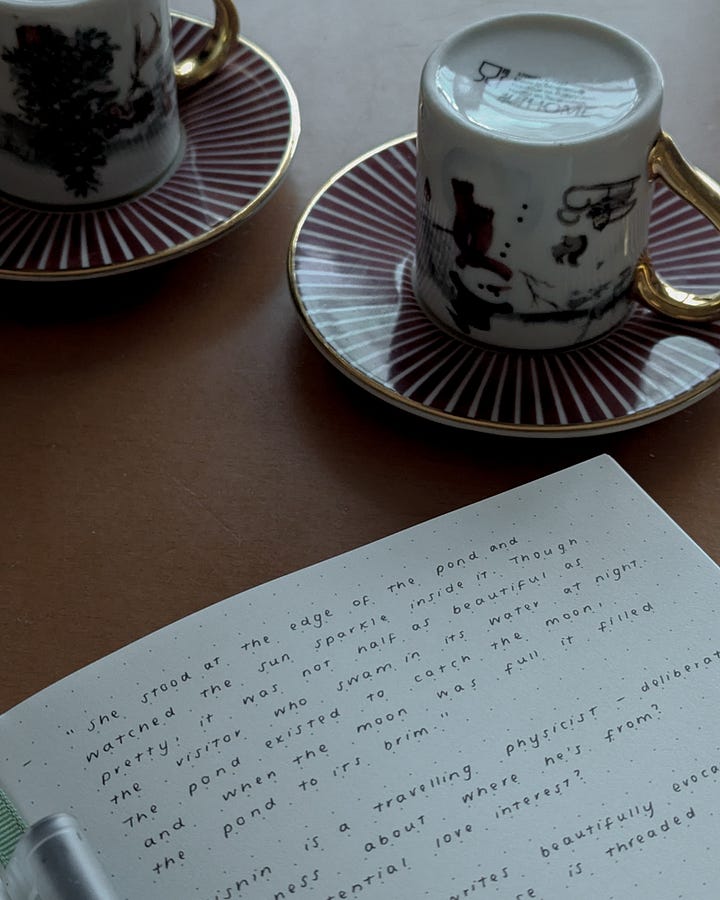 "She stood at the edge of the pond and
watched the sun sparkle inside it. Though
pretty, it was not half as beautiful as
the visitor who swam in its water at night.
The pond existed to catch the moon,
and when the moon was full it filled
the pond to its brim."
is a travelling physicist – deliberat
ness about where he's from?
tential love interest?
writes beautifully evoca
is threaded